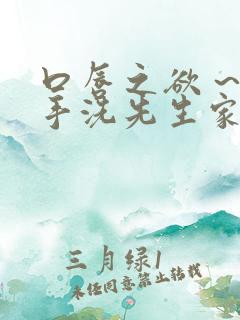 口唇之欲~
手洗先生家
三月绿1
未经同意禁止转载